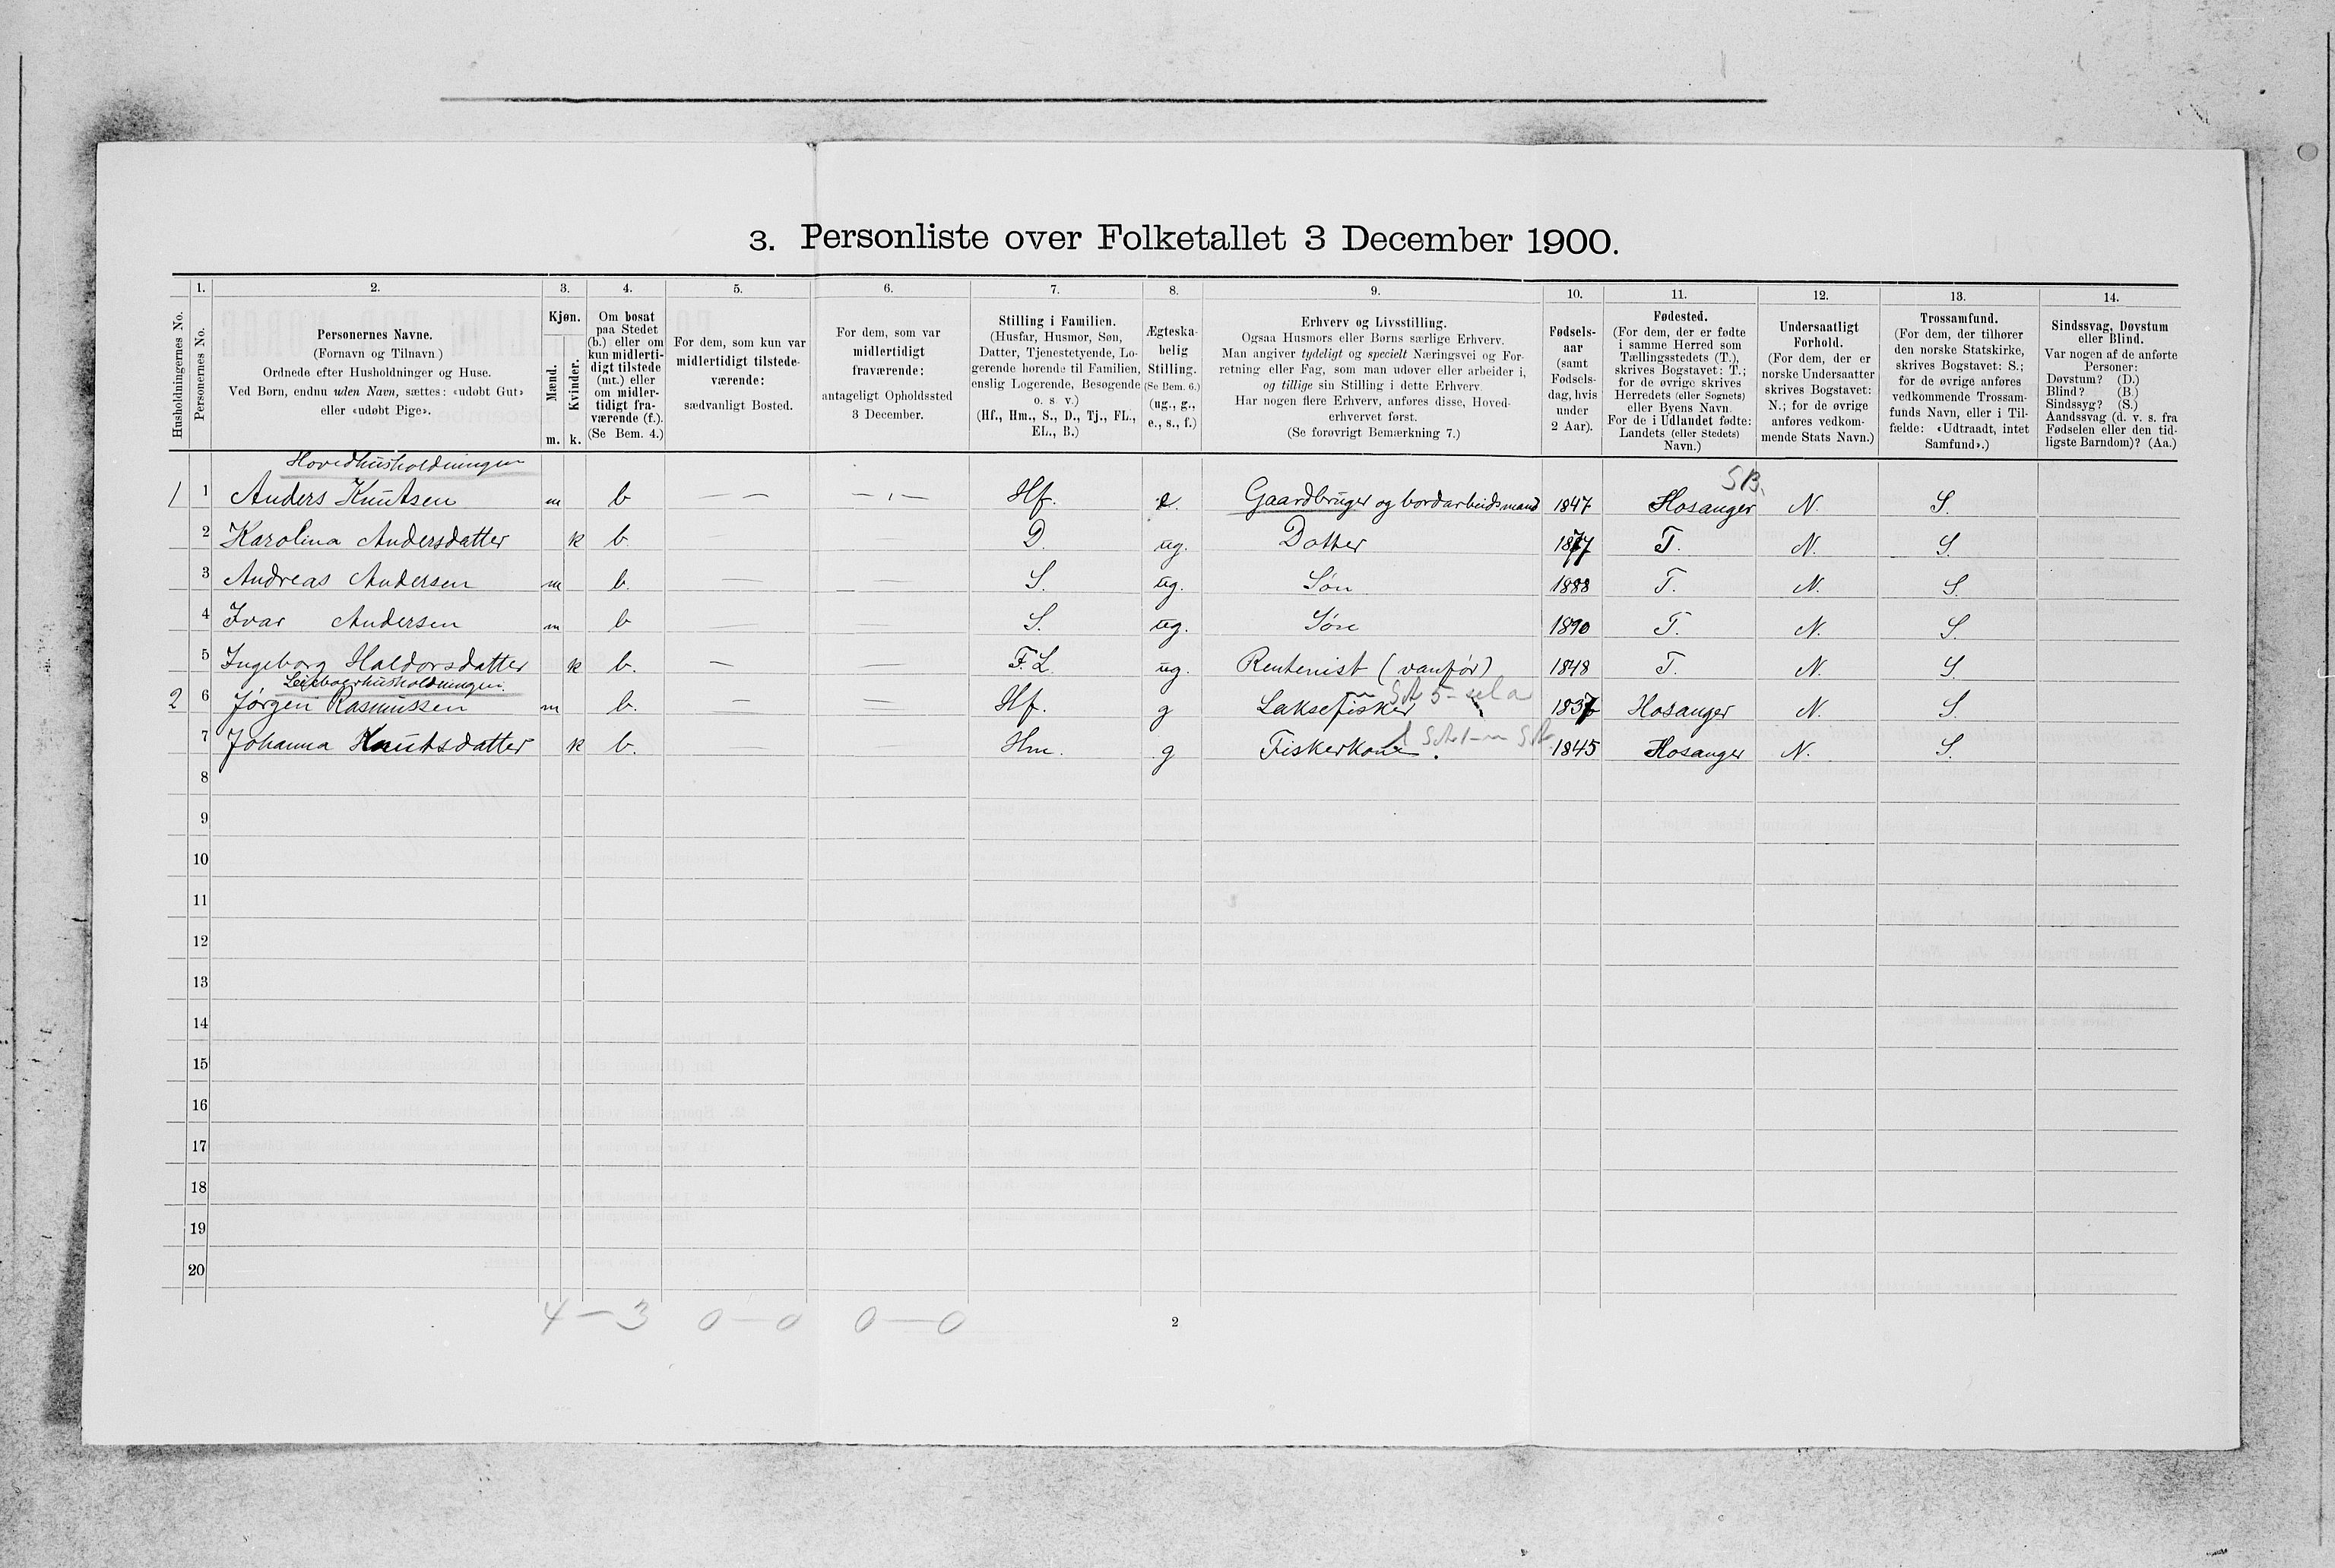 3. Personliste over Folketallet 3 December 1900.
Husholdningernes No.
1.
Personernes No.
2.
Personernes Navne.
(Fornavn og Tilnavn.)
Ordnede efter Husholdninger og Huse.
Ved Børn, endnu uden Navn, sættes: «udøbt Gut»
eller «udøbt Pige».
3.
Kjøn.
Mænd.
Kvinder.
m. k.
4.
Om bosat
paa Stedet
(b.) eller om
kun midlerti-
digt tilstede
(mt.) eller
om midler-
tidigt fra-
værende (f.).
(Se Bem. 4.)
5.
For dem, som kun var
midlertidigt tilstede-
værende:
sædvanligt Bosted.
6.
For dem, som var
midlertidigt
fraværende:
antageligt Opholdssted
3 December.
7.
Stilling i Familien.
(Husfar, Husmor, Søn,
Datter, Tjenestetyende, Lo-
gerende hørende til Familien,
enslig Logerende, Besøgende
o. s. v.)
(Hf., Hm., S., D., Tj., FL.,
EL., B.)
8.
Ægteska-
belig
Stilling.
(Se Bem. 6.)
(ug., g.,
e., s., f.)
9.
Erhverv og Livsstilling.
Ogsaa Husmors eller Børns særlige Erhverv.
Man angiver tydeligt og specielt Næringsvei og For-
retning eller Fag, som man udøver eller arbeider i,
og tillige sin Stilling i dette Erhverv.
Har nogen flere Erhverv, anføres disse, Hoved-
erhvervet først.
(Se forøvrigt Bemærkning 7.)
10.
Fødsels-
aar
(samt
Fødsels-
dag, hvis
under
2 Aar).
11.
Fødested.
(For dem, der er fødte
i samme Herred som
Tællingsstedets (T.),
skrives Bogstavet: T.;
for de øvrige skrives
Herredets (eller Sognets)
eller Byens Navn.
For de i Udlandet fødte:
Landets (eller Stedets)
Navn.)
12.
Undersaatligt
Forhold.
(For dem, der er
norske Undersaatter
skrives Bogstavet:
N.; for de øvrige
anføres vedkom-
mende Stats Navn.)
13.
Trossamfund.
(For dem, der tilhører
den norske Statskirke,
skrives Bogstavet: S.;
for de øvrige anføres
vedkommende Trossam-
funds Navn, eller i Til-
fælde: «Udtraadt, intet
Samfund».)
14.
Sindssvag, Døvstum
eller Blind.
Var nogen af de anførte
Personer:
Døvstum? (D.)
Blind? (B.)
Sindssyg? (S.)
Aandssvag (d. v. s. fra
Fødselen eller den tid-
ligste Barndom)? (Aa.)
Hovedhusholdningen
SB.
1 1 Anders Knutsen m b — — — — Hf. e. Gaardbruger og bordarbeidsmand 1847 Hosanger N. S.
2 Karolina Andersdatter k b. D. ug. Dotter 1877 T. N. S.
3 Andreas Andersen m b. — — S. ug. Søn 1888 T. N. S.
4 Ivar Andersen m b — — S. ug. Søn 1890 T. N. S.
5 Ingeborg Haldorsdatter k b. — — F.L. ug. Rentenist (vanfør) 1848 T. N. S.
Leieboerhusholdningen.
2 6 Jørgen Rasmussen m b. = = Hf. g Laksefisker 1837 Hosanger N. S.
7 Johanna Knutsdatter k b. — — Hm. g Fiskerkone. 1845 Hosanger N. S.
8
9
10
11
12
13
14
15
16
17
18
19
20
4 — 3 0 — 0 0 — 0
2